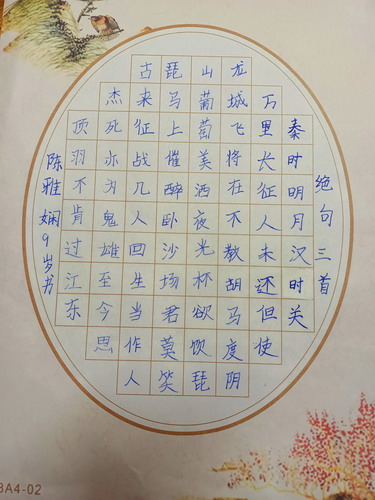 绝句三首
秦时明月汉时关
万里长征人未还但使
龙城飞将在不教胡马度阴
山葡萄美酒夜光杯欲饮琵
琵马上催醉卧沙场君莫笑
古来征战几人回生当作人
杰死亦为鬼雄至今思
顶羽不肯过江东
陈雅娴9岁书
A4-02